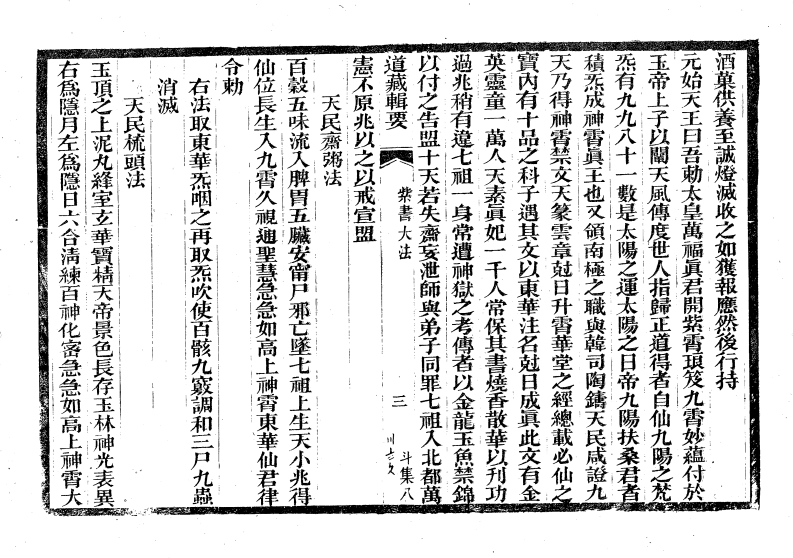 酒菓供養至誠燈滅收之如獲報應然後行持
元始天王曰吾勅太皇萬福眞君開紫霄瓊笈九霄妙蘊付於
玉帝上子以闡天風傳度世人指歸正道得者自仙九陽之梵
炁有九九八十一數是太陽之運太陽之日帝九陽扶桑君者
積炁成神霄眞王也又領南極之職與韓司陶鑄天民咸證九
天乃得神霄禁文天篆雲章尅日升霄華堂之經總載必仙之
寶內有十品之科子遇其文以東華注名尅日成眞此文有金
英靈童一萬人天素眞妃一千人常保其書燒香散華以刊功
過兆稍有違七祖一身常遭神獄之考傳者以金龍玉魚禁錦
以付之告盟十天若失齋妄泄師與弟子同罪七祖入北都萬
道藏輯要
紫書大法
三
斗集八
憲不原兆以之以戒宣盟
天民齋粥法
百穀五味流入脾胃五臟安甯尸邪亡墜七祖上生天小兆得
仙位長生入九霄久視通聖慧急急如高上神霄東華仙君律
令勅
右法取東華炁咽之再取炁吹使百骸九竅調和三尸九蟲
消滅
天民梳頭法
玉頂之上泥丸絳室玄華寶精天帝景色長存玉林神光表異
右爲隱月左爲隱日六合淸練百神化密急急如高上神霄大